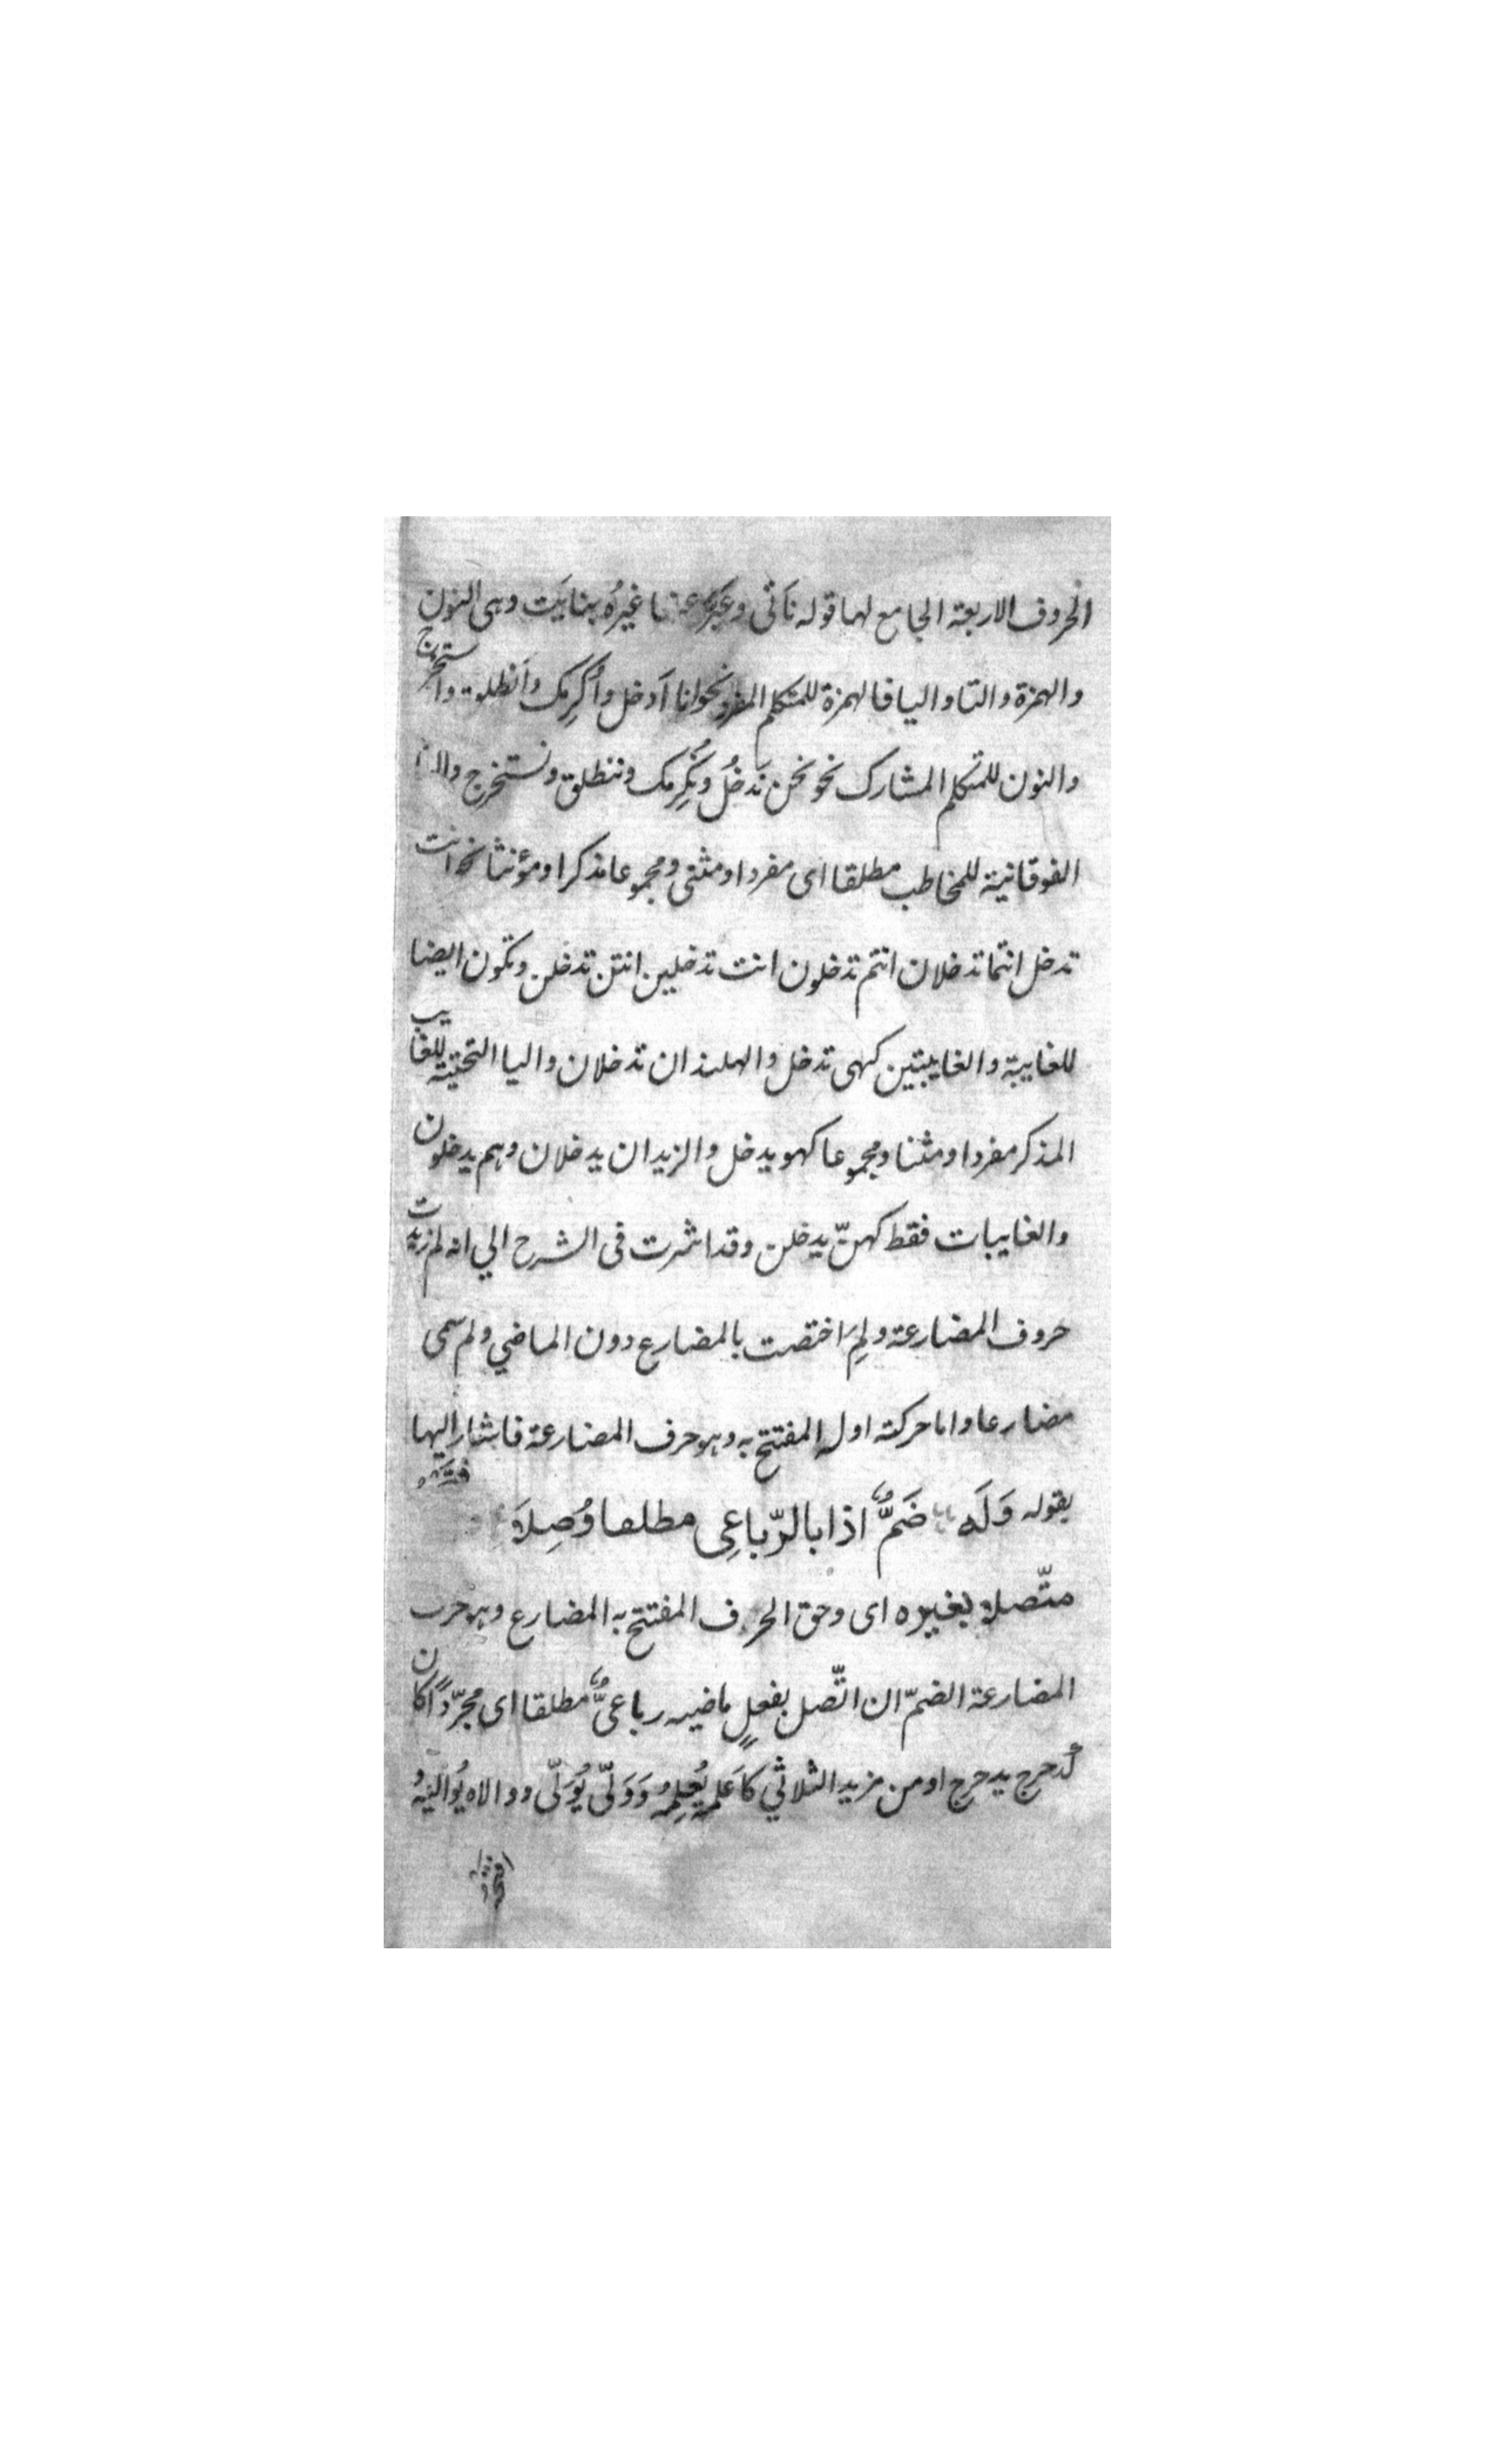 الحروف الاربعة الجامع لها قوله نَأتى وعَبَّر عنها غيرُه بنايَت وهى النون
والهمزة والتا واليا فالهمزة للمتكلم المفرد نحو انا اَدخل واُكرِمك واَنطلق واستخرج
والنون للمتكلم المشارك نحو نحن نَدخُل ونُكرِمك وننطلق ونستخرج والتا
الفوقانية للمخاطب مطلقا اى مفردا ومثنى ومجموعا مذكرا ومؤنثا نحو انت
تدخل انتما تدخلان انتم تدخلون انت تدخلين انتن تدخلن وتكون ايضا
للغايبة والغايبتين كهى تدخل والهندان تدخلان واليا التحتية للغايب
المذكر مفردا ومثنا ومجموعا كهو يدخل والزيدان يدخلان وهم يدخلون
والغايبات فقط كهنّ يدخلن وقد اشرت فى الشرح الي انه لم زيدت
حروف المضارعة ولِمَ اختصت بالمضارع دون الماضي ولم سمى
مضارعا واما حركته اوله المفتتح به وهو حرف المضارعة فاشار اليها
بقوله وَلَه ضَمٌّ اذا بالرّباعِى مطلقا وُصِلاَ
متّصلا بغيره اى وحق الحرف المفتتح به المضارع وهو حرف
المضارعة الضمّ ان اتّصل بفعلٍ ماضيه رباعىٌّ مطلقا اى مجرّدًا كان
كدحرج يدحرج او من مزيد الثلاثي كاَعلمه يُعلِمُه وَوَلّى يُوَلّى ووالاه يُواليهُ